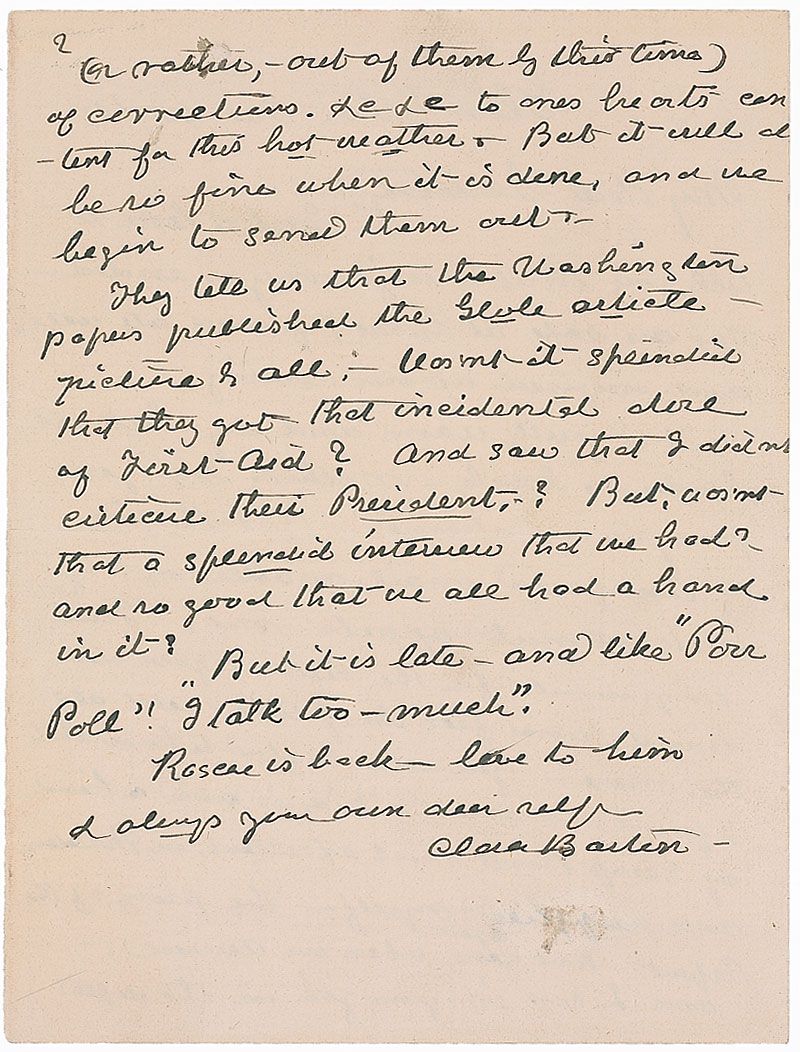 ?
(or rather, - out of them by this time)
of corrections. &c &c to ones hearts con
-tent for this hot weather. - But it will al
be so fine when it is done, and we
begin to send them out. -
They tell us that the Washington
papers published the Globe article -
picture & all, - Wasnt it splendid
that they got that incidental dose
of First-Aid? And saw that I didnt
criticise their President, -? But, wasnt
that a splendid interview that we had?
and so good that we all had a hand
in it?
But it is late - and like "Porr
Poll"! "I talk too - much".
Roscoe is back - love to him
& always your own dear self
Clara Barton -